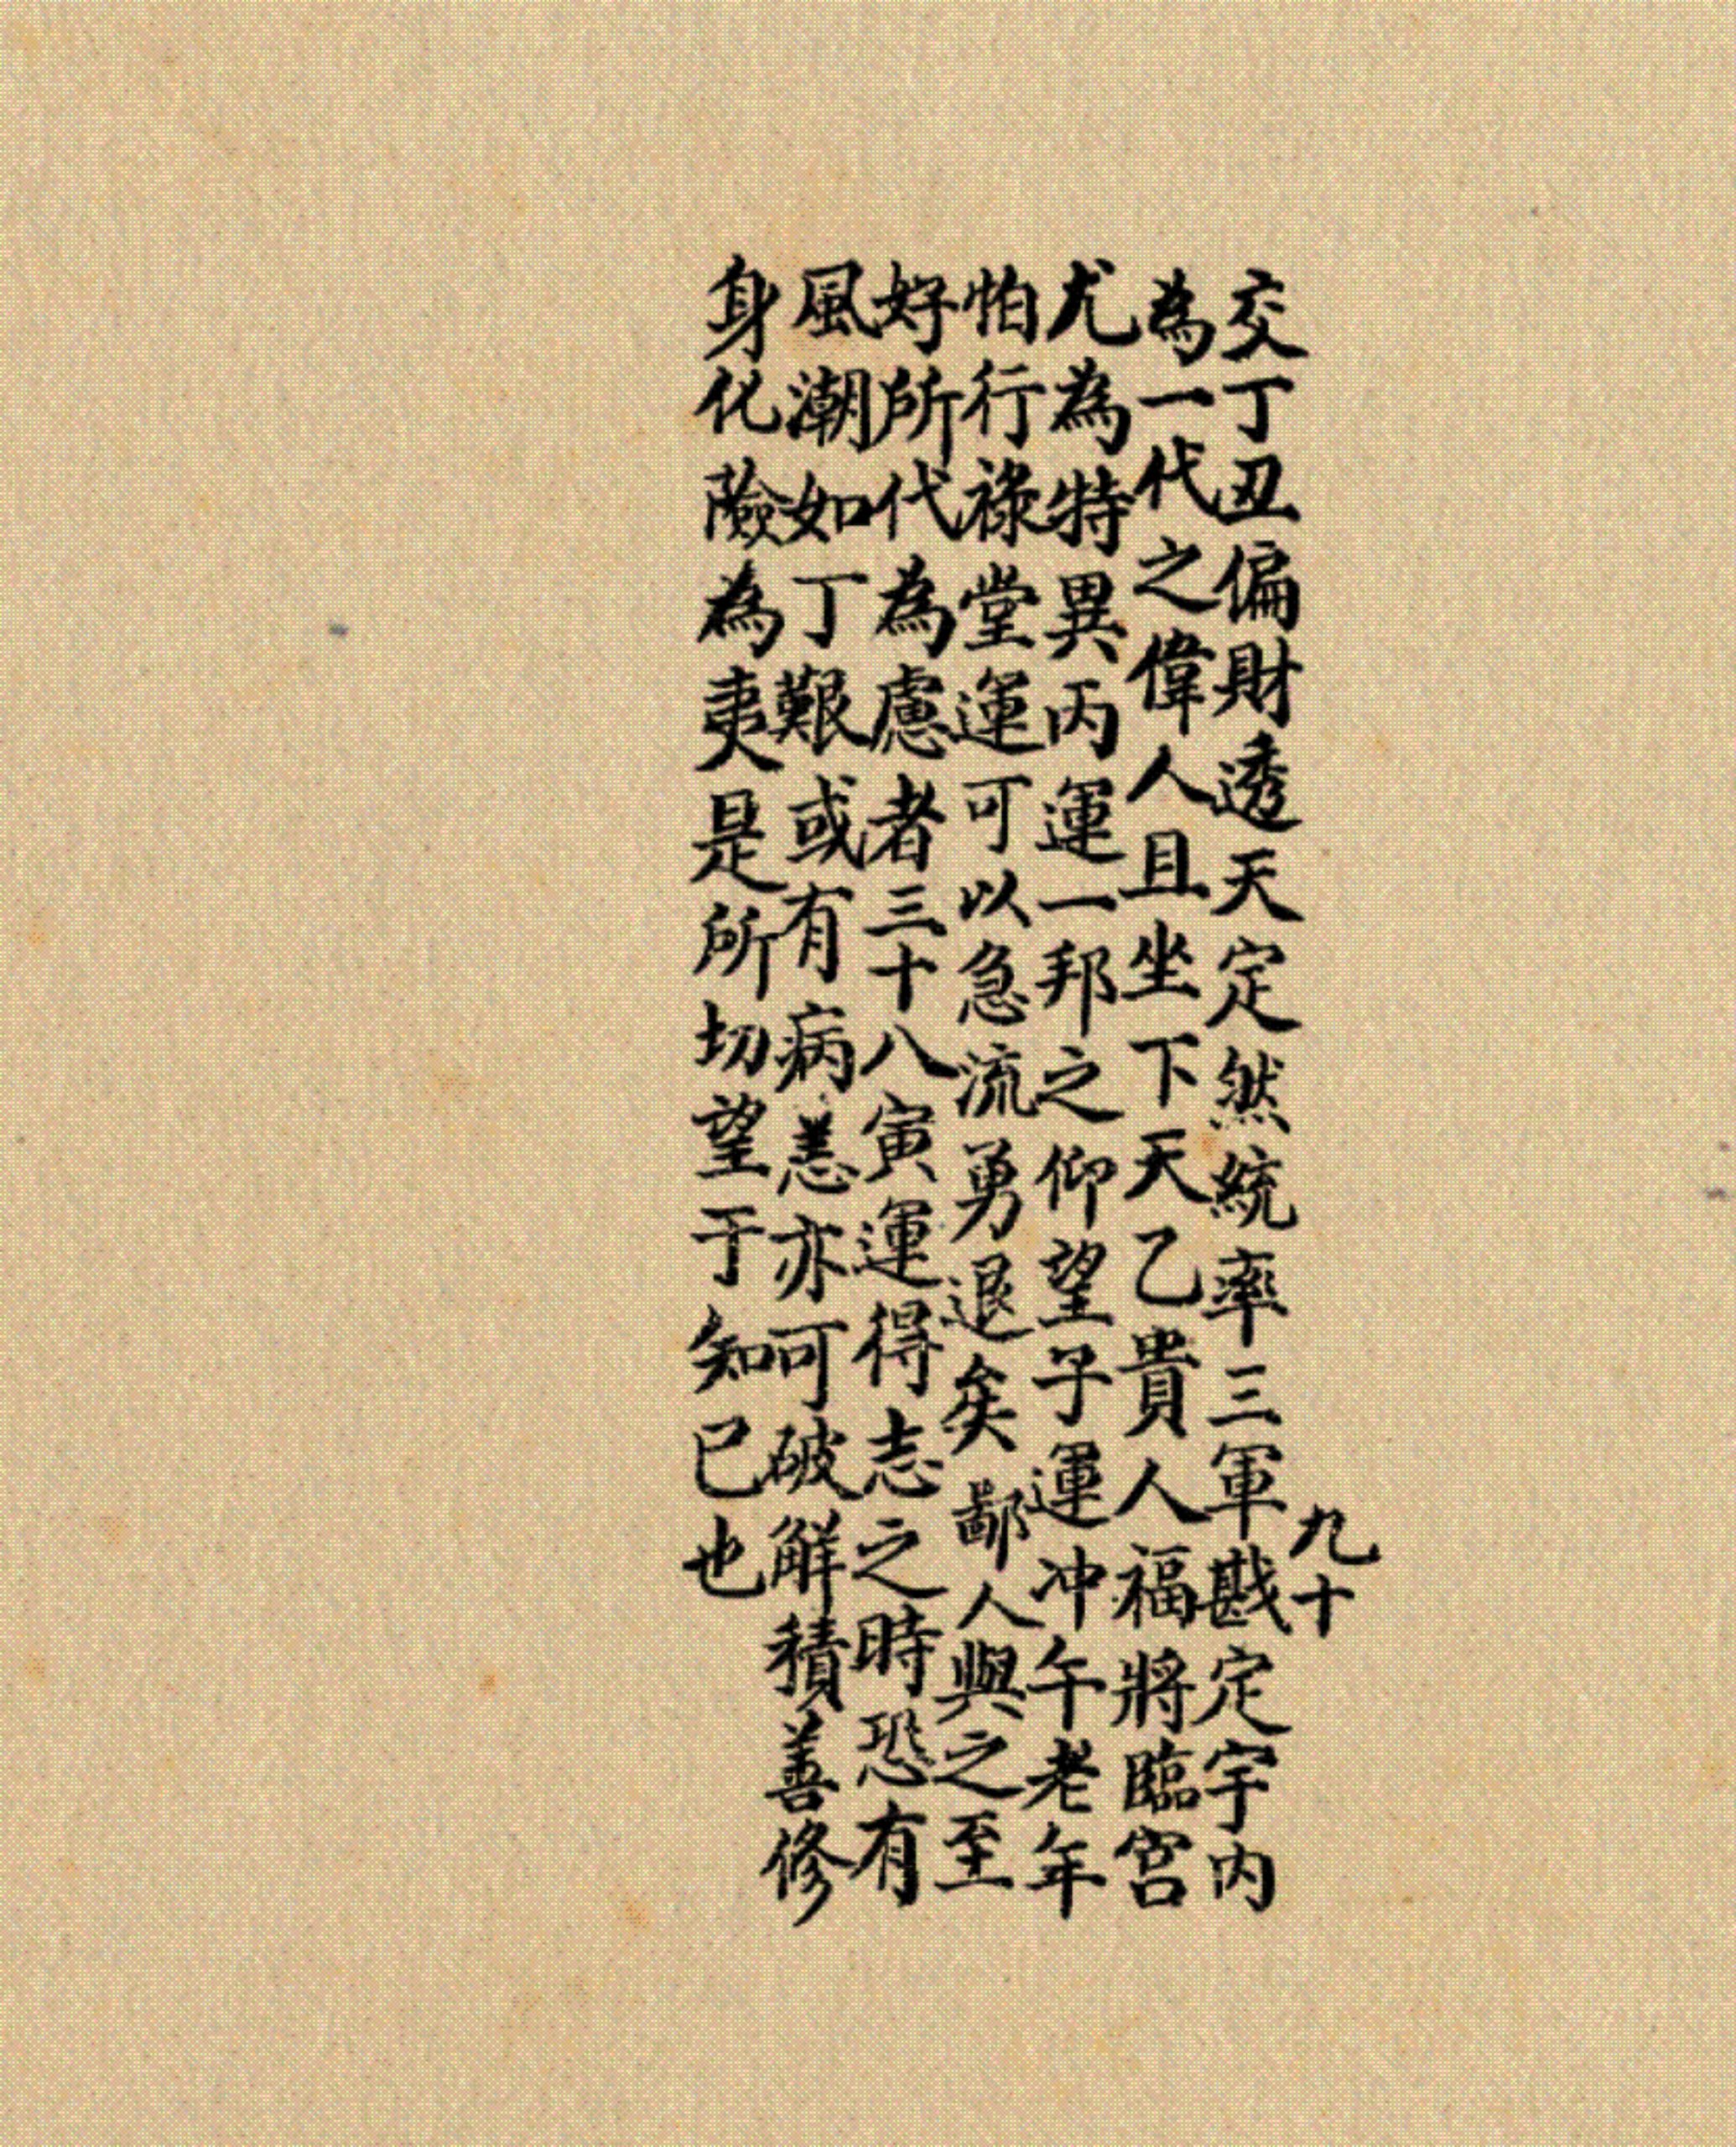 九十
交丁丑偏財透天定然統率三軍戡定宇內
為一代之偉人且坐下天乙貴人福將臨宮
尤為特異丙運一邦之仰望子運冲午老年
怕行祿堂運可以急流勇退矣鄙人與之至
好所代為慮者三十八寅運得志之時恐有
風潮如丁艱或有病恙亦可破解積善修
身化險為夷是所切望于知已也